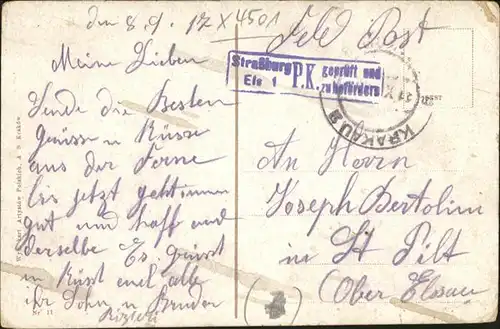 den 8.9.17 X 4501
Feld Post
Meine Lieben
Straßburg P.K. geprüft und
Els 1 zu befördern
KRAKAU 2
Sende die Besten
grüsse u Küsse
aus der Ferne
bis jetzt geht immer
gut und hoff und
derselbe Es grüsst
u Küsst euch alle
ihr Sohn u Bruder
An Herrn
Joseph Bertolin
in St Pilt
(Ober Elsass
(4)
Nr. 11